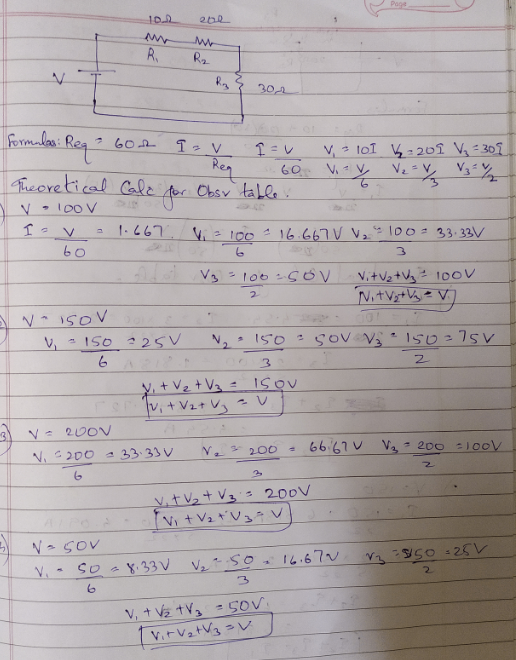 Page
10Ω 20Ω
R₁ R₂
V R₃ 30Ω
Formulas: Req = 60Ω I = V/Req I = V/60 V₁ = 10I V₂ = 20I V₃ = 30I
V₁ = V/6 V₂ = V/3 V₃ = V/2
Theoretical Calc for Obsv table.
V = 100V
I = V/60 = 1.667 V₁ = 100/6 = 16.667V V₂ = 100/3 = 33.33V
V₃ = 100/2 = 50V V₁+V₂+V₃ = 100V
V₁+V₂+V₃ = V
V = 150V
V₁ = 150/6 = 25V V₂ = 150/3 = 50V V₃ = 150/2 = 75V
V₁ + V₂ + V₃ = 150V
V₁ + V₂ + V₃ = V
3) V = 200V
V₁ = 200/6 = 33.33V V₂ = 200/3 = 66.67V V₃ = 200/2 = 100V
V₁ + V₂ + V₃ = 200V
V₁ + V₂ + V₃ = V
V = 50V
V₁ = 50/6 = 8.33V V₂ = 50/3 = 16.67V V₃ = 50/2 = 25V
V₁ + V₂ + V₃ = 50V
V₁+V₂+V₃ = V